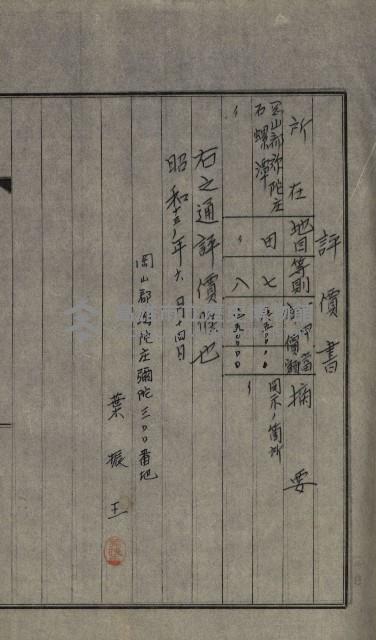 評價書
所在 地目 等則 甲當價額 摘要
岡山郡弥陀庄石螺潭 田 七 図示ノ箇所
〃 〃 八 〃
右之通評價候也
昭和十五年六月十四日
岡山郡弥陀庄彌陀三〇〇番地
葉振王